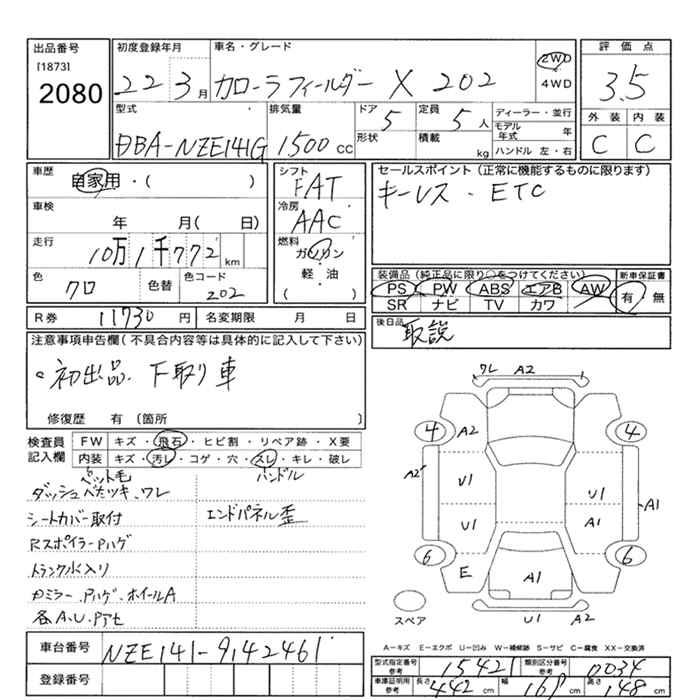 出品番号
[1873]
2080
初度登録年月
22 3月
車名・グレード
カローラフィールダー X 202
2WD
4WD
評価点
3.5
型式
DBA-NZE141G
排気量
1500 CC
ドア
5
形状
定員
5 人
積載
kg
ディーラー・並行
モデル
年式 年
ハンドル 左・右
外装 内装
C C
車歴
自家用・( )
車検
年 月( 日)
走行
10万1千772 km
色
クロ
色替
色コード
202
シフト
FAT
冷房
AAC
燃料
ガソリン
軽・油
( )
セールスポイント(正常に機能するものに限ります)
キーレス・ETC
装備品(純正品に限り○をつけてください)
PS PW ABS エアB AW
SR ナビ TV カワ
新車保証書
有・無
R券 11730 円
名変期限 月 日
後日品
取説
注意事項申告欄(不具合内容等は具体的に記入して下さい)
。初出品 下取り車
修復歴 有 〔箇所 〕
検査員
記入欄
FW キズ・飛石・ヒビ割・リペア跡・X要
内装 キズ・汚レ・コゲ・穴・スレ・キレ・破レ
ペット毛 ハンドル
ダッシュベタツキ、ワレ
シートカバー取付 エンドパネル歪
RスポイラーPハゲ
トランク水入り
ドミラーPハゲ、ホイールA
各A.U.Pアセ
ワレ A2
4 A2 4
A2 U1 U1 A1
U1 A1
6 E A1 6
スペア
U1 A2
A−キズ E−エクボ U−凹み W−補修跡 S−サビ C−腐食 XX−交換済
車台番号 NZE141-9142461
登録番号
型式指定番号
参考
15421
類別区分番号
参考
0034
車庫証明用
参考
長さ 442 cm 幅 169 cm 高さ 148 cm